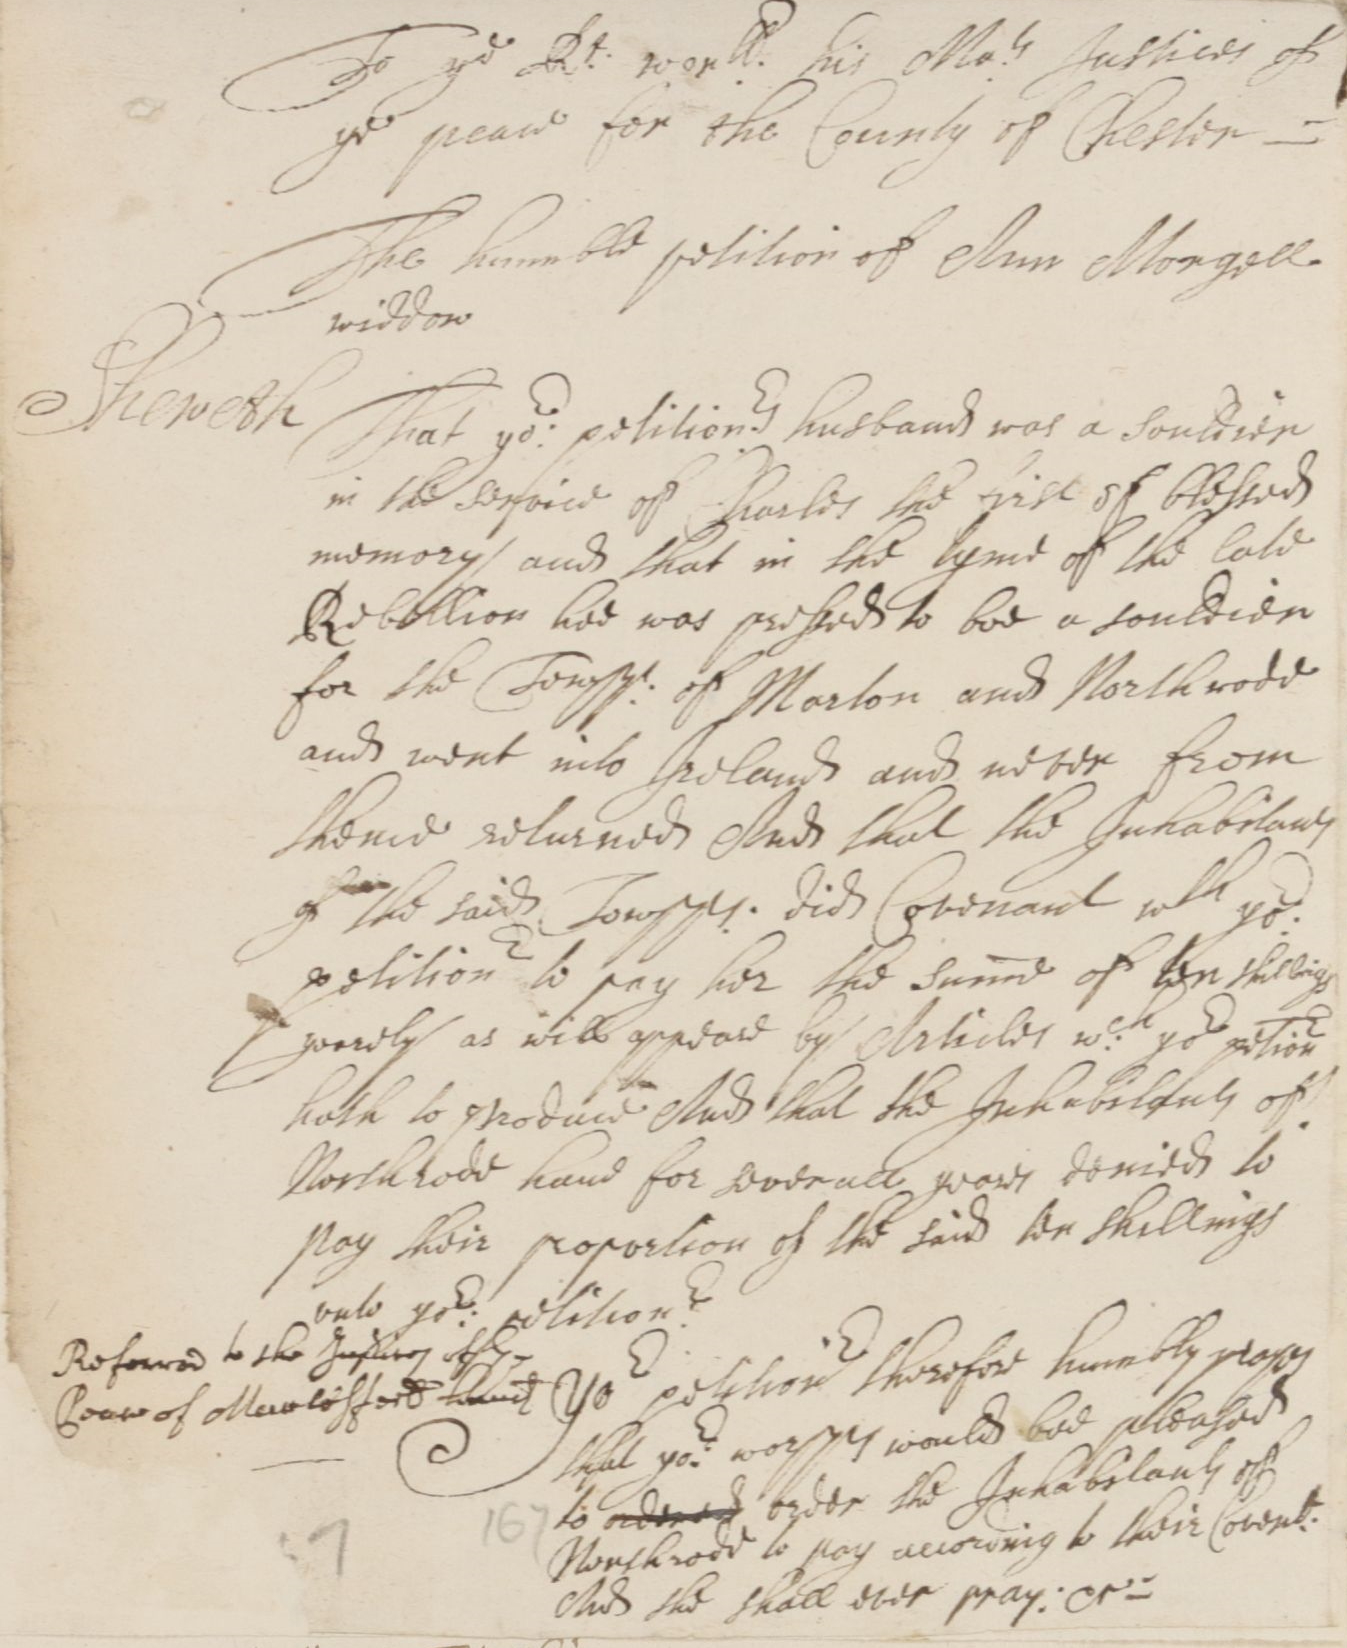 To ye Rt. worll. his Mats Justices of
ye peace for the County of Chester
The humble petition of Ann Morgell
widdow
Sheweth
That yor: petitionrs husband was a souldier
in the service of Charles the first of blessed
memory and that in the tyme of the late
Rebellion hee was pressed to bee a souldier
for the Towpps. of Marton and Northrode
and went into Ireland and never from
thence returned And that the Inhabitants
of the said Towpps. did Covenant wth yor:
petitionr to pay her the summe of ten shillings
yearely as will appeare by Articles wch yor petionr
hath to produce And that the Inhabitants of
Northrode have for severall yeares denied to
pay their proportion of the said ten shillings
unto yor: petitionr
Referred to the Justices of the
Peace of Macclesfeld hund
Yor petitionr therefore humbly prayes
that yor: worpps would bee pleased
to ordered order the Inhabitants of
Northrode to pay according to their Covent.
And she shall ever pray: &c
167
7